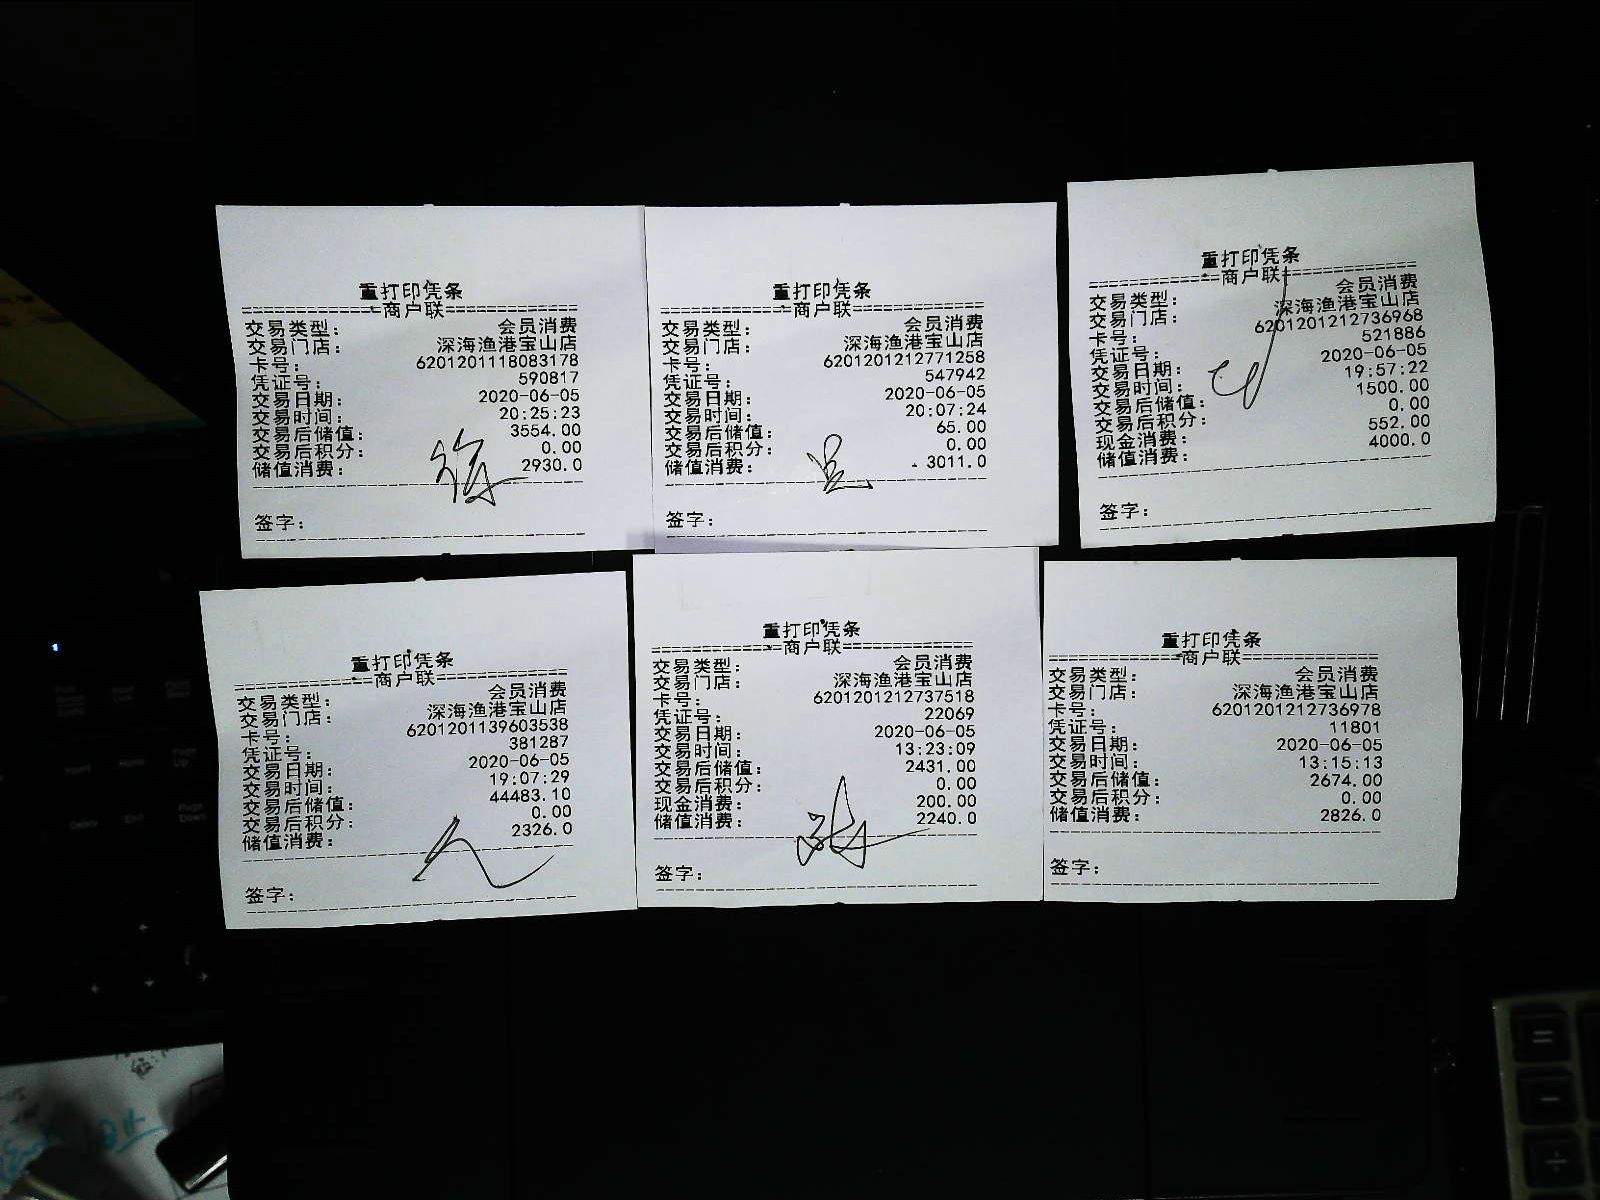 重打印凭条
============商户联============
交易类型： 会员消费
交易门店： 深海渔港宝山店
卡号： 6201201118083178
凭证号： 590817
交易日期： 2020-06-05
交易时间： 20:25:23
交易后储值： 3554.00
交易后积分： 0.00
储值消费： 2930.0
签字：
重打印凭条
============商户联============
交易类型： 会员消费
交易门店： 深海渔港宝山店
卡号： 6201201212771258
凭证号： 547942
交易日期： 2020-06-05
交易时间： 20:07:24
交易后储值： 65.00
交易后积分： 0.00
储值消费： 3011.0
签字：
重打印凭条
============商户联============
交易类型： 会员消费
交易门店： 深海渔港宝山店
卡号： 6201201212736968
凭证号： 521886
交易日期： 2020-06-05
交易时间： 19:57:22
交易后储值： 1500.00
交易后积分： 0.00
现金消费： 552.00
储值消费： 4000.0
签字：
重打印凭条
============商户联============
交易类型： 会员消费
交易门店： 深海渔港宝山店
卡号： 6201201139603538
凭证号： 381287
交易日期： 2020-06-05
交易时间： 19:07:29
交易后储值： 44483.10
交易后积分： 0.00
储值消费： 2326.0
签字：
重打印凭条
============商户联============
交易类型： 会员消费
交易门店： 深海渔港宝山店
卡号： 6201201212737518
凭证号： 22069
交易日期： 2020-06-05
交易时间： 13:23:09
交易后储值： 2431.00
交易后积分： 0.00
现金消费： 200.00
储值消费： 2240.0
签字：
重打印凭条
============商户联============
交易类型： 会员消费
交易门店： 深海渔港宝山店
卡号： 6201201212736978
凭证号： 11801
交易日期： 2020-06-05
交易时间： 13:15:13
交易后储值： 2674.00
交易后积分： 0.00
储值消费： 2826.0
签字：